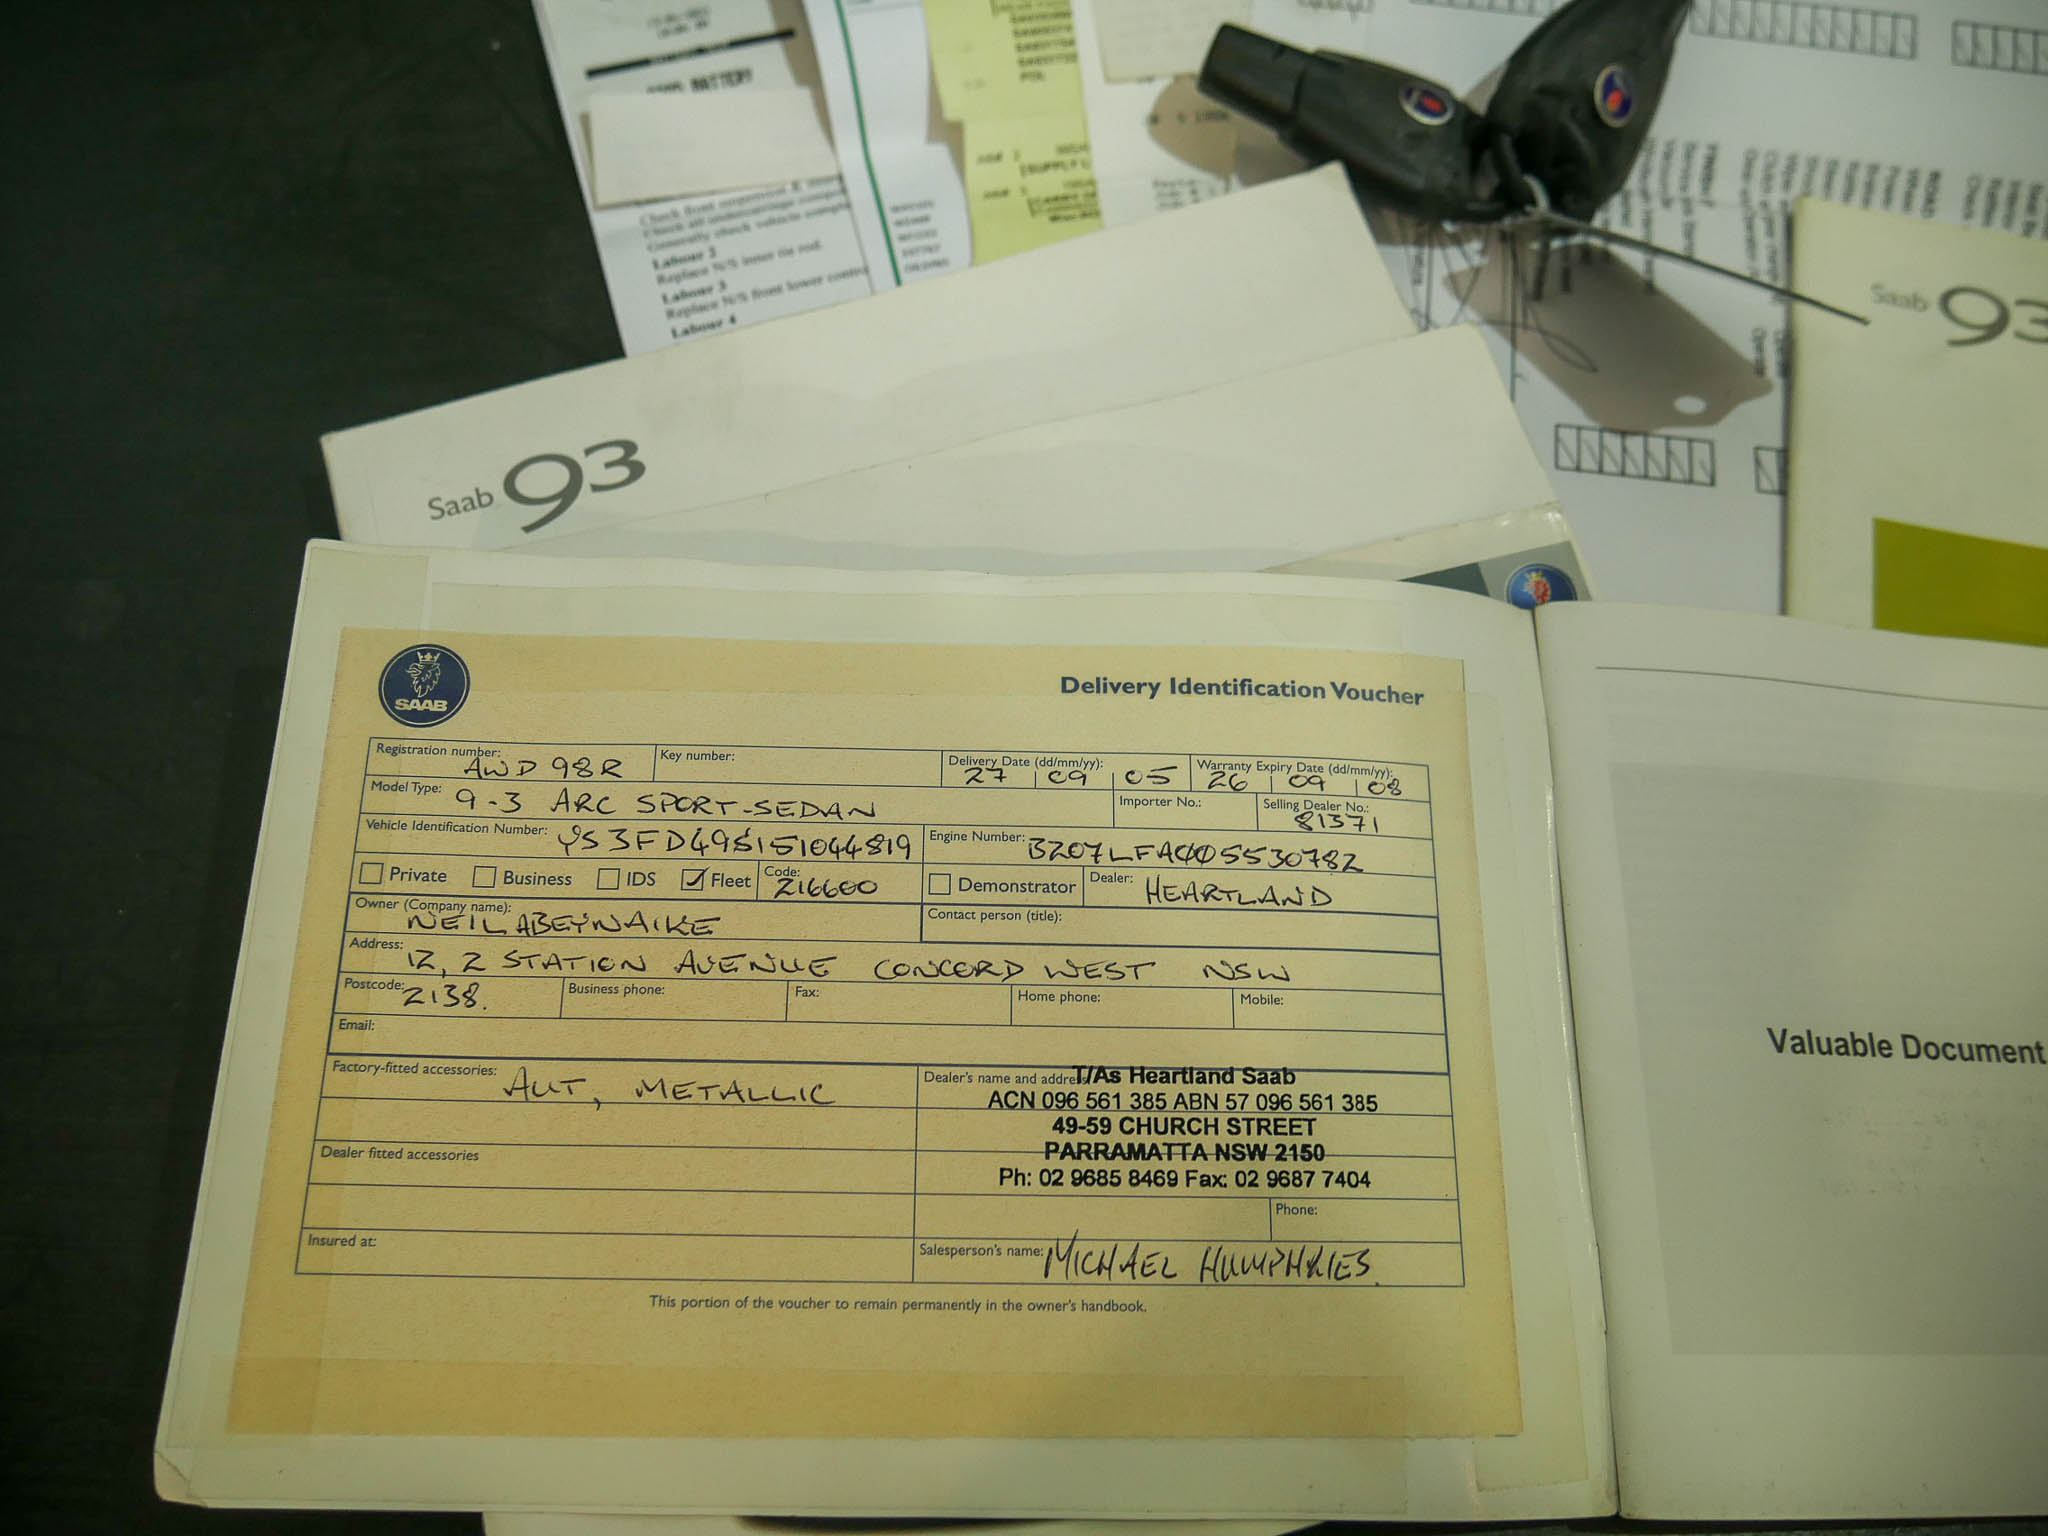 BATTERY
Check front suspension &
Check all undercarriage
Generally check vehicle
Labour 2
Replace N/S inner tie rod.
Labour 3
Replace N/S front lower
Labour 4
Saab 93
Saab 93
SAAB
Delivery Identification Voucher
Registration number: AWD 98R Key number: Delivery Date (dd/mm/yy): 27 09 05 Warranty Expiry Date (dd/mm/yy): 26 09 08
Model Type: 9-3 ARC SPORT-SEDAN Importer No.: Selling Dealer No.: 81371
Vehicle Identification Number: YS3FD49S151044819 Engine Number: B207LFA005530782
Private Business IDS Fleet Code: 216600 Demonstrator Dealer: HEARTLAND
Owner (Company name): NEIL ABEYNAIKE Contact person (title):
Address: 12, 2 STATION AVENUE CONCORD WEST NSW
Postcode: 2138. Business phone: Fax: Home phone: Mobile:
Email:
Factory-fitted accessories: AUT, METALLIC Dealer's name and address T/As Heartland Saab
ACN 096 561 385 ABN 57 096 561 385
49-59 CHURCH STREET
Dealer fitted accessories PARRAMATTA NSW 2150
Ph: 02 9685 8469 Fax: 02 9687 7404
Phone:
Insured at: Salesperson's name: MICHAEL HUMPHRIES.
This portion of the voucher to remain permanently in the owner's handbook.
Valuable Document